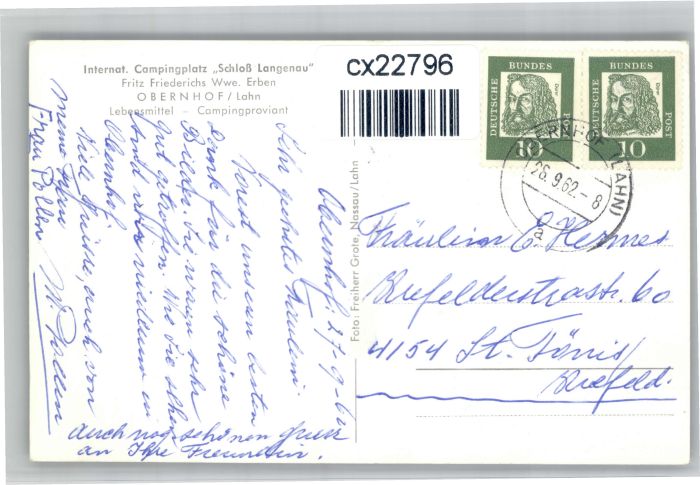 Internat. Campingplatz „Schloß Langenau"
Fritz Friederichs Wwe. Erben
OBERNHOF / Lahn
Lebensmittel – Campingproviant
cx22796
DEUTSCHE BUNDES POST
Dürer
10
DEUTSCHE BUNDES POST
Dürer
10
OBERNHOF (LAHN)
26.9.62-8
a
Foto: Freiherr Grote, Nassau/Lahn
Obernhof. 27-9-62
Sehr geehrtes Fräulein.
Vorest unseren besten
Dank für die schöne
Bilder. Sie waren sehr
gut getroffen. Wo die sehen
sind wir wieder in
Obernhof
Viele Grüsse, auch von
meine Frau
Frau Pollen
W. Pollen
auch noch schönen Gruss
an Ihre Freundin.
Fräulein E. Hermes
Krefelderstrasse 60
4154 St. Tönis/
Krefeld.